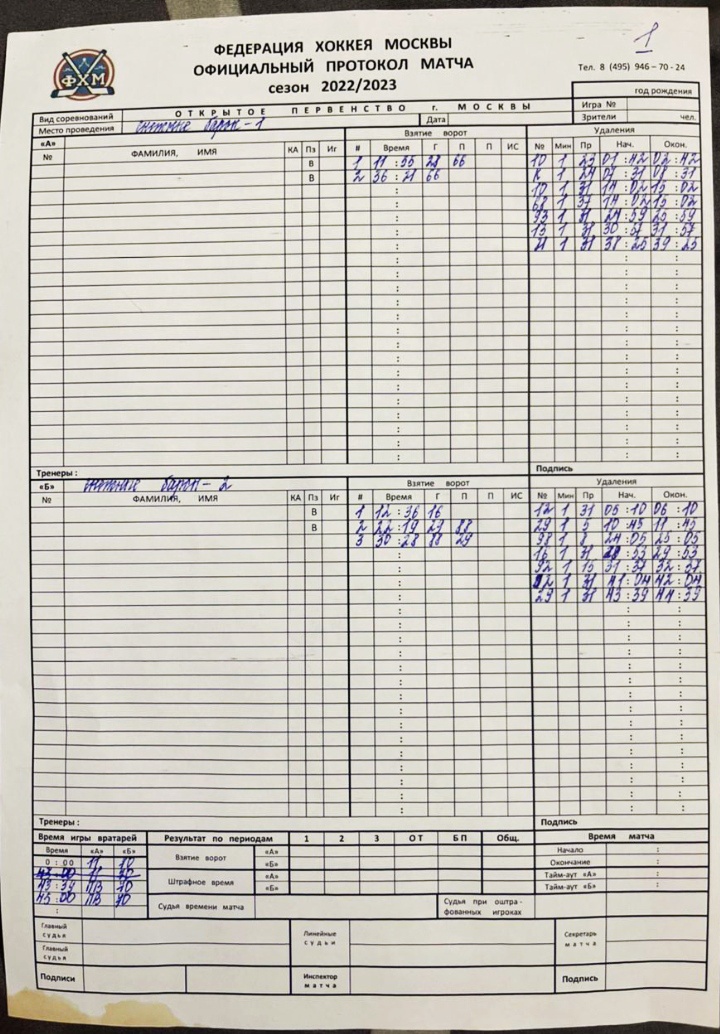 1
ФХМ
ФЕДЕРАЦИЯ ХОККЕЯ МОСКВЫ
ОФИЦИАЛЬНЫЙ ПРОТОКОЛ МАТЧА
сезон 2022/2023
Тел. 8 (495) 946 – 70 - 24
год рождения
Вид соревнований ОТКРЫТОЕ ПЕРВЕНСТВО г. МОСКВЫ Игра №
Место проведения Снежные барсы - 1 Дата Зрители чел.
«А» Взятие ворот Удаления
№ ФАМИЛИЯ, ИМЯ КА Пз Иг # Время Г П П ИС № Мин Пр Нач. Окон.
В 1 11 : 55 28 66 10 1 23 01 : 42 02 : 42
В 2 36 : 21 66 К 1 24 07 : 31 08 : 31
10 1 31 14 : 02 15 : 02
68 1 37 14 : 02 15 : 02
93 1 31 24 : 59 25 : 59
15 1 31 30 : 57 31 : 57
21 1 31 38 : 25 39 : 25
Тренеры : Подпись
«Б» Снежные барсы - 2 Взятие ворот Удаления
№ ФАМИЛИЯ, ИМЯ КА Пз Иг # Время Г П П ИС № Мин Пр Нач. Окон.
В 1 12 : 36 16 12 1 31 05 : 10 06 : 10
В 2 22 : 19 29 88 29 1 5 10 : 45 11 : 45
3 30 : 28 88 29 98 1 8 24 : 05 25 : 05
16 1 31 28 : 53 29 : 53
92 1 15 31 : 37 32 : 37
1 31 41 : 04 42 : 04
29 1 31 43 : 39 44 : 39
Тренеры : Подпись
Время игры вратарей Результат по периодам 1 2 3 ОТ БП Общ. Время матча
Время «А» «Б» Взятие ворот «А» Начало :
0 : 00 11 70 «Б» Окончание :
Штрафное время «А» Тайм-аут «А» :
43 : 39 ПВ 70 «Б» Тайм-аут «Б» :
45 : 00 ПВ 70 Судья времени матча Судья при оштра-
: фованных игроках
Главный судья Линейные судьи Секретарь матча
Главный судья
Подписи Инспектор матча Подпись